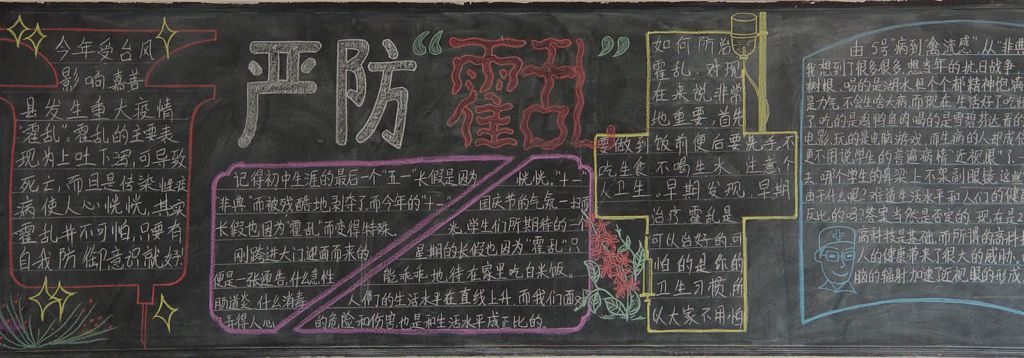 今年受台风
影响嘉善
县发生重大疫情
"霍乱"。霍乱的主要表
现为上吐下泻,可导致
死亡,而且是传染性疫
病使人心恍恍,其实
霍乱并不可怕,只要有
自我防御意识就好
严防"霍乱"
记得初中生涯的最后一个"五一"长假是因为
非典"而被残酷地剥夺了而今年的"十一"
长假也因为"霍乱"而变得特殊。
刚踏进大门迎面而来的
便是一张通告,什么急性
肠道炎 什么消毒
弄得人心
恍恍,"十一"
国庆节的气氛一扫而
光,学生们所期待的
星期的长假也因为"霍乱"只
能乖乖地待在家里吃白米饭。
人们的生活水平在直线上升,而我们面对
的危险和伤害也是和生活水平成正比的。
如何防治
霍乱,对现
在来说非常
地重要,首先
要做到饭前便后要洗手,不
吃生食,不喝生水,注意个
人卫生,早期发现,早期
治疗,霍乱是
可以治好的可
怕的是你的
卫生习惯的
以大家不用怕
由5号"病到"禽流感"从"非典
我想到了很多很多,想当年的抗日战争
树根,喝的是湖水但个个都精神饱满
是力气,不会生啥大病,而现在,生活好了吃
了,吃的是鸡鸭鱼肉喝的是雪碧
电影,玩的是电脑游戏,而生病的人却成倍
更不用说学生的普遍病情"近视眼"了,一
去,哪个学生的鼻梁上不架副眼镜,这
由于什么呢?难道生活水平和人们的健
反比的吗?答案当然是否定的,现在是2
高科技是基础,而所谓的高科技
人的健康带来了很大的威胁,
脑的辐射加速近视眼的形成